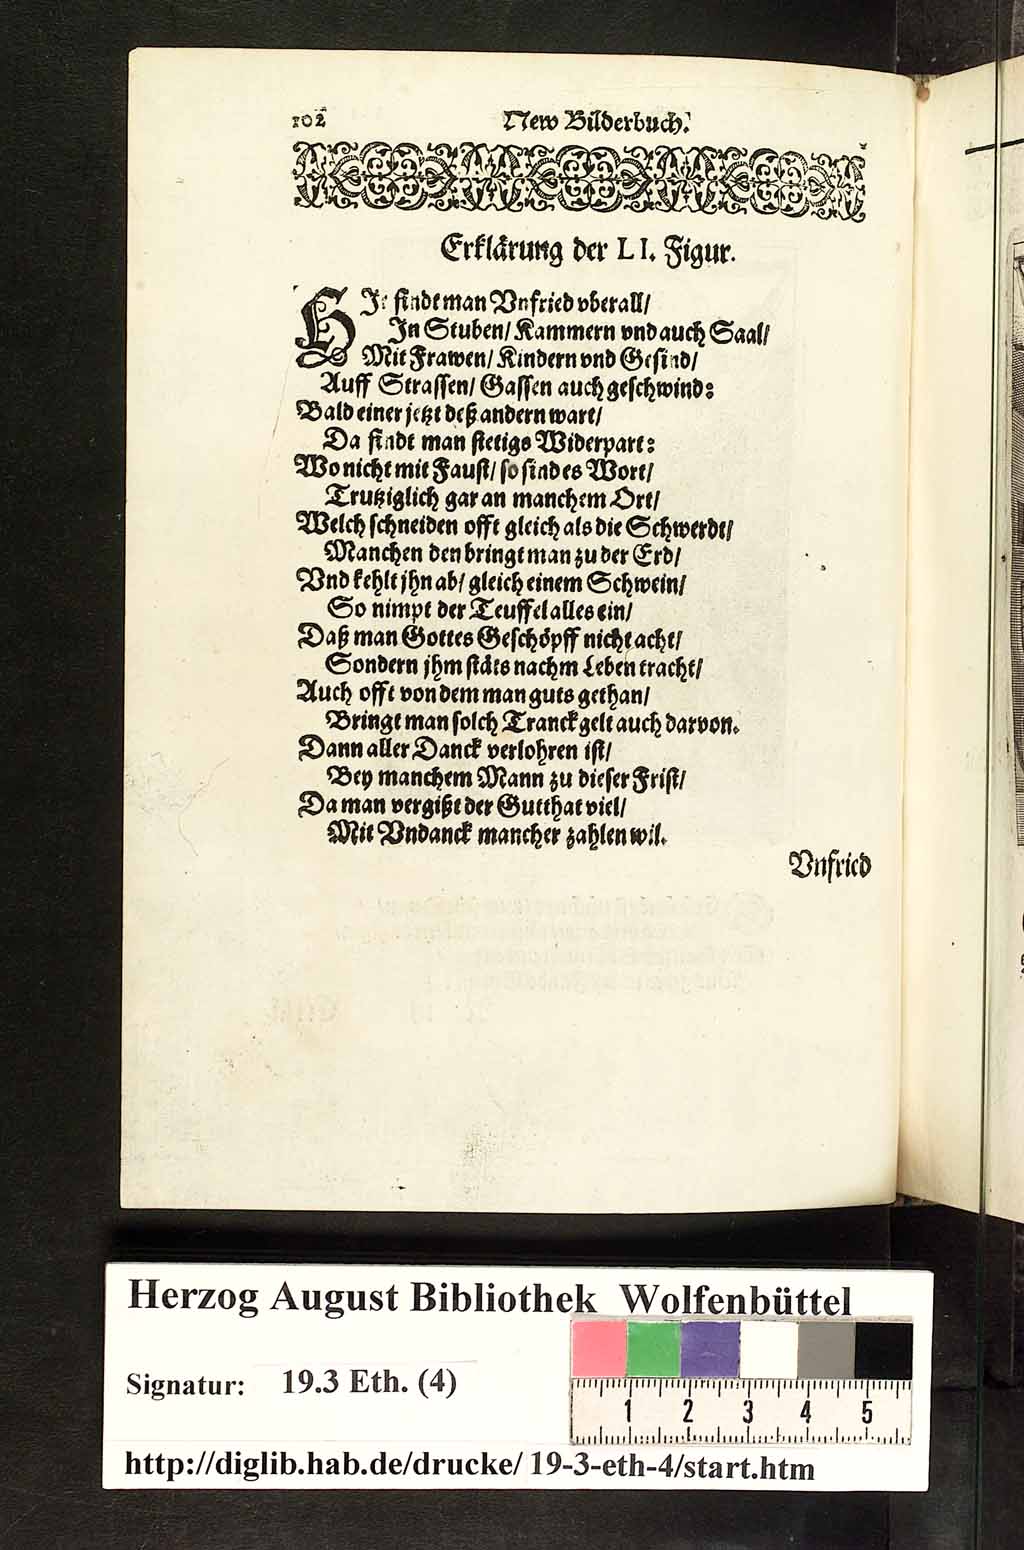 102
New Bilderbuch.
Erklärung der LI. Figur.
HIe findt man Vnfried vberall/
In Stuben/ Kammern vnd auch Saal/
Mit Frawen/ Kindern vnd Gesind/
Auff Strassen/ Gassen auch geschwind:
Bald einer jetzt deß andern wart/
Da findt man stetigs Widerpart:
Wo nicht mit Faust/ so sind es Wort/
Trutziglich gar an manchem Ort/
Welch schneiden offt gleich als die Schwerdt/
Manchen den bringt man zu der Erd/
Vnd kehlt jhn ab/ gleich einem Schwein/
So nimpt der Teuffel alles ein/
Daß man Gottes Geschöpff nicht acht/
Sondern jhm stäts nachm Leben tracht/
Auch offt von dem man guts gethan/
Bringt man solch Tranckgelt auch darvon.
Dann aller Danck verlohren ist/
Bey manchem Mann zu dieser Frist/
Da man vergißt der Gutthat viel/
Mit Vndanck mancher zahlen wil.
Vnfried
Herzog August Bibliothek Wolfenbüttel
Signatur: 19.3 Eth. (4)
1 2 3 4 5
http://diglib.hab.de/drucke/ 19-3-eth-4/start.htm